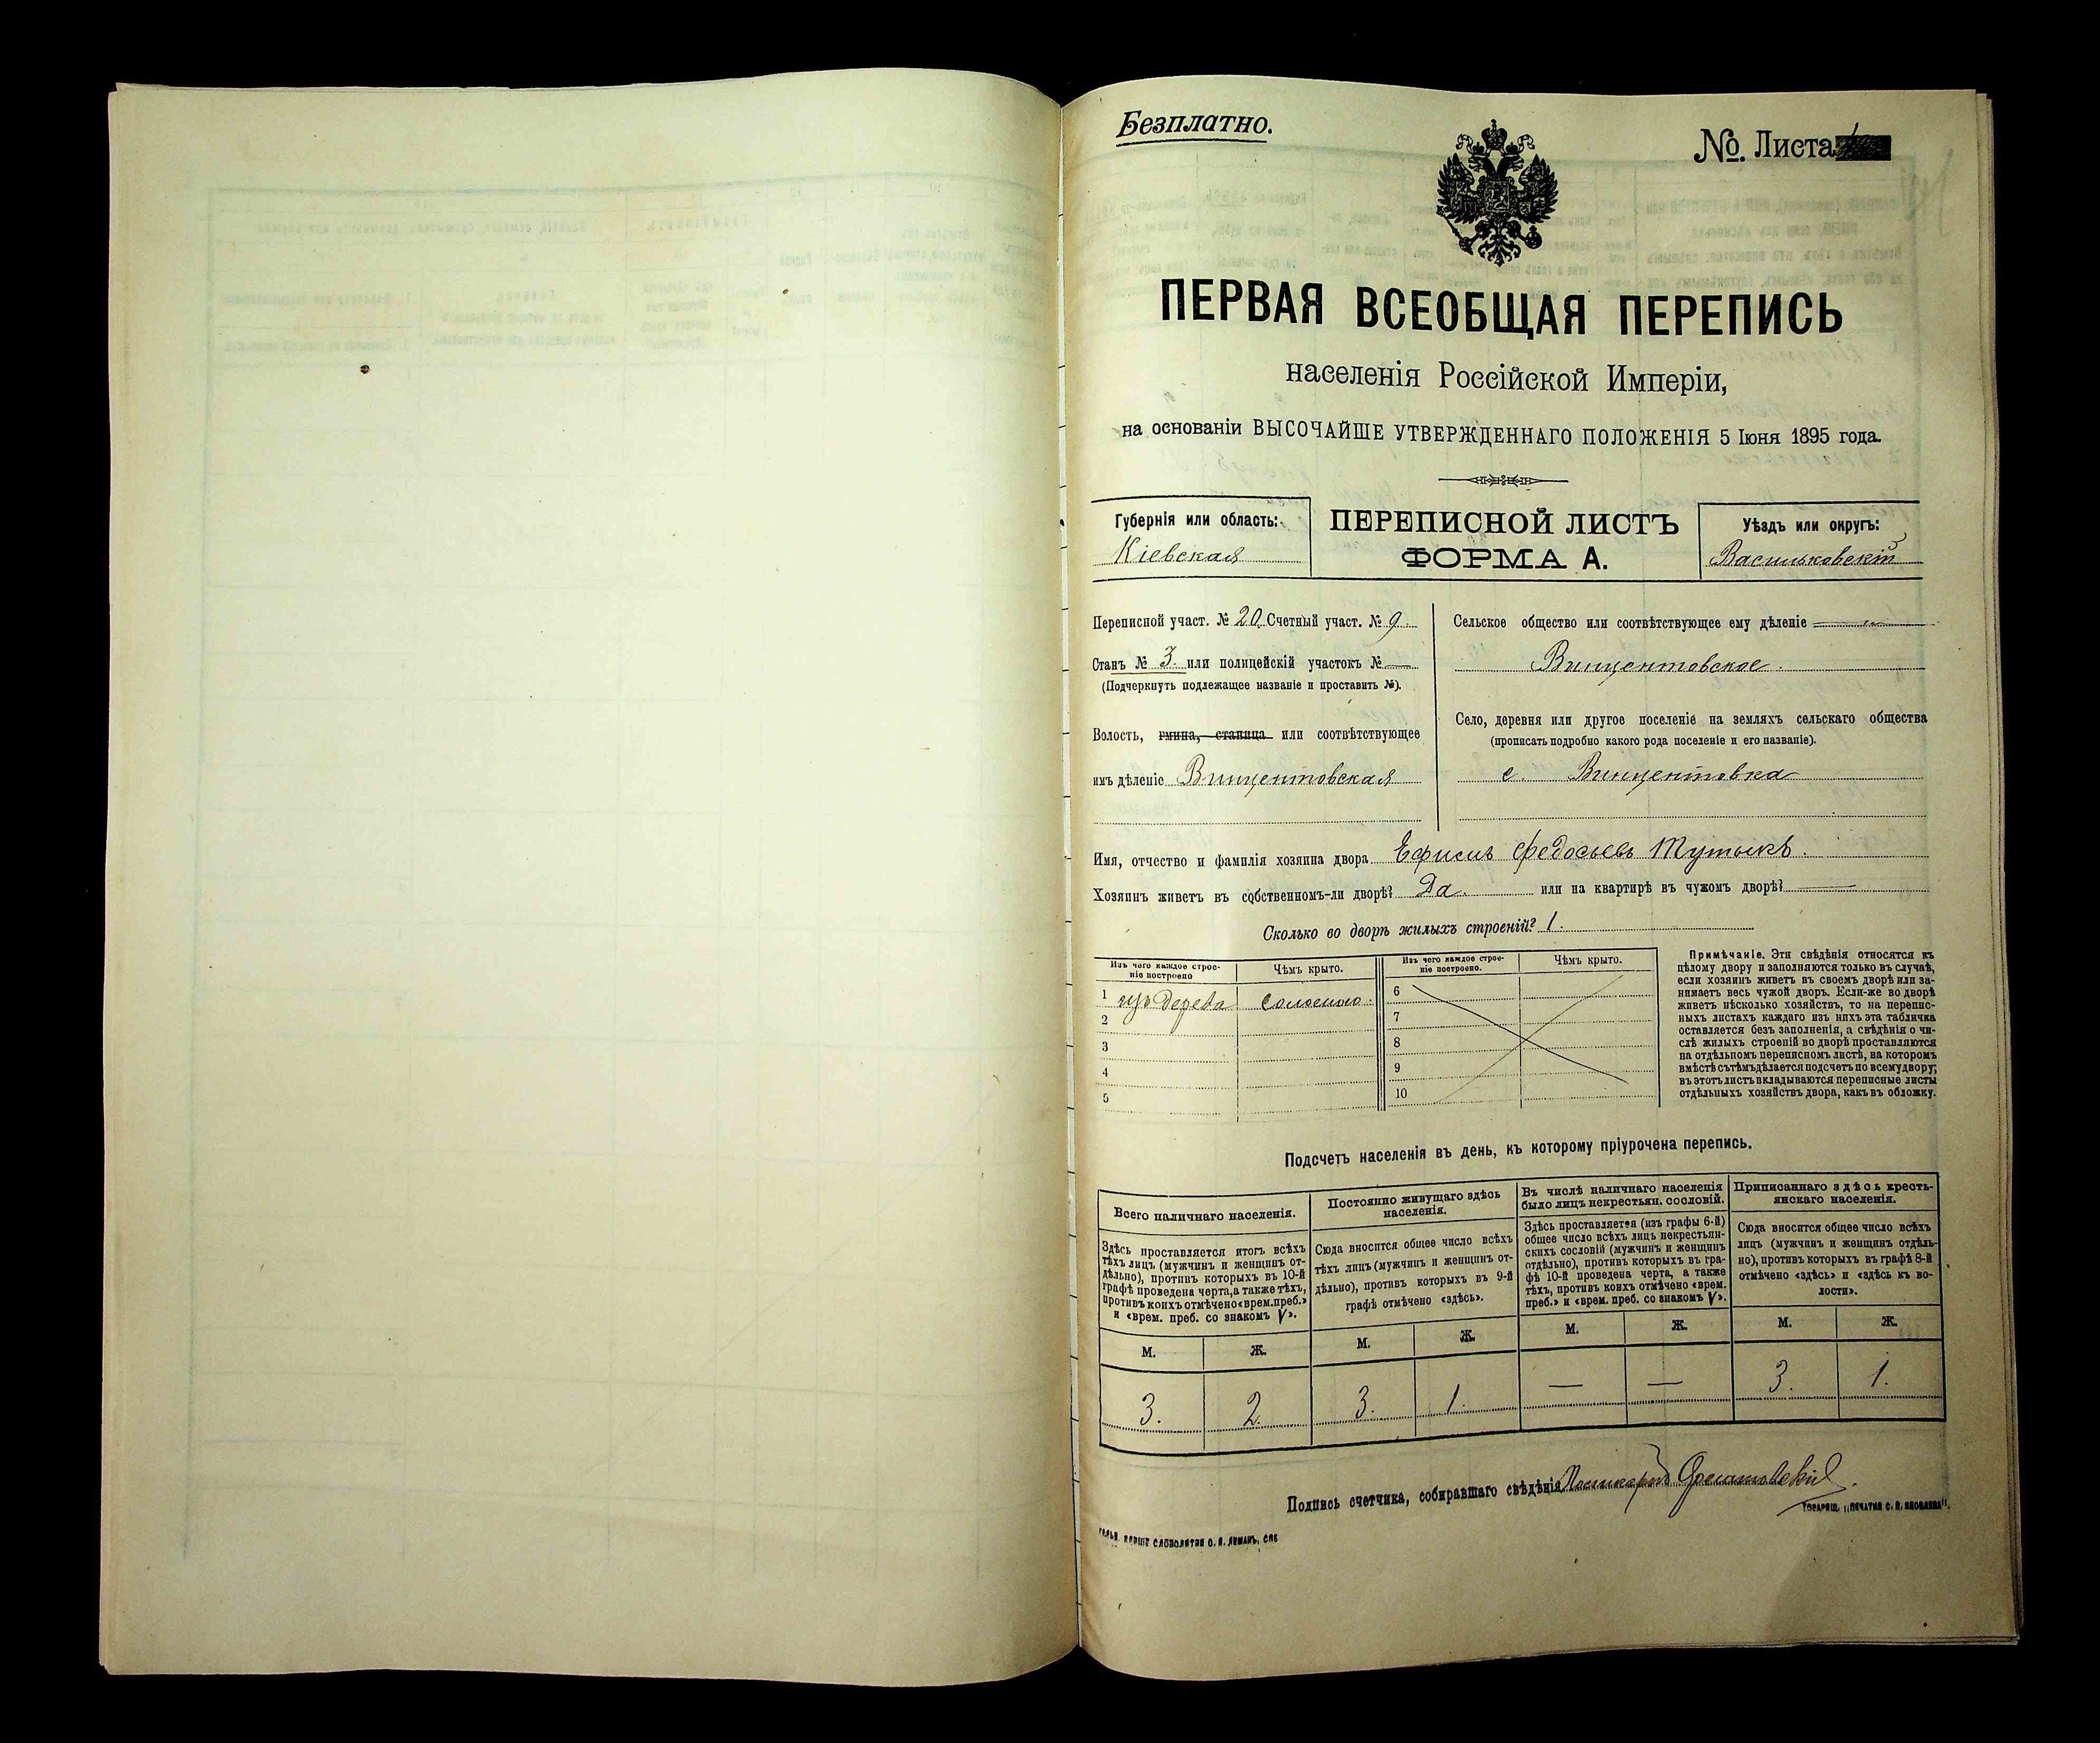 Безплатно.
No. Листа
ПЕРВАЯ ВСЕОБЩАЯ ПЕРЕПИСЬ
населенія Россійской Имперіи,
на основаніи ВЫСОЧАЙШЕ УТВЕРЖДЕННАГО ПОЛОЖЕНІЯ 5 Іюня 1895 года.
Губернія или область:
Кіевская
ПЕРЕПИСНОЙ ЛИСТЪ
ФОРМА А.
Уѣздъ или округъ:
Васильковскій
Переписной участ. № 20. Счетный участ. № 9.
Станъ № 3. или полицейскій участокъ № —
(Подчеркнуть подлежащее названіе и проставить №).
Волость, гмина, станица или соотвѣтствующее
имъ дѣленіе Винцентовская
Сельское общество или соотвѣтствующее ему дѣленіе
Винцентовское.
Село, деревня или другое поселеніе на земляхъ сельскаго общества
(прописать подробно какого рода поселеніе и его названіе).
с. Винцентовка
Имя, отчество и фамилія хозяина двора Ефимъ Федосьевъ
Хозяинъ живетъ въ собственномъ-ли дворѣ? Да. или на квартирѣ въ чужомъ дворѣ? —
Сколько во дворѣ жилыхъ строеній? 1.
Изъ чего каждое строе-
ніе построено
Чѣмъ крыто.
1 изъ дерева соломою.
2
3
4
5
Изъ чего каждое строе-
ніе построено.
Чѣмъ крыто.
6
7
8
9
10
Примѣчаніе. Эти свѣдѣнія относятся къ
цѣлому двору и заполняются только въ случаѣ,
если хозяинъ живетъ въ своемъ дворѣ или за-
нимаетъ весь чужой дворъ. Если-же во дворѣ
живетъ нѣсколько хозяйствъ, то на перепис-
ныхъ листахъ каждаго изъ нихъ эта табличка
оставляется безъ заполненія, а свѣдѣнія о чи-
слѣ жилыхъ строеній во дворѣ проставляются
на отдѣльномъ переписномъ листѣ, на которомъ
вмѣстѣ съ тѣмъ дѣлается подсчетъ по всему двору;
въ этотъ листъ вкладываются переписные листы
отдѣльныхъ хозяйствъ двора, какъ въ обложку.
Подсчетъ населенія въ день, къ которому пріурочена перепись.
Всего наличнаго населенія.
Здѣсь проставляется итогъ всѣхъ
тѣхъ лицъ (мужчинъ и женщинъ от-
дѣльно), противъ которыхъ въ 10-й
графѣ проведена черта, а также тѣхъ,
противъ коихъ отмѣчено «врем. преб.»
и «врем. преб. со знакомъ V».
М. Ж.
3. 2.
Постоянно живущаго здѣсь
населенія.
Сюда вносится общее число всѣхъ
тѣхъ лицъ (мужчинъ и женщинъ от-
дѣльно), противъ которыхъ въ 9-й
графѣ отмѣчено «здѣсь».
М. Ж.
3. 1.
Въ числѣ наличнаго населенія
было лицъ некрестьян. сословій.
Здѣсь проставляется (изъ графы 6-й)
общее число всѣхъ лицъ некрестьян-
скихъ сословій (мужчинъ и женщинъ
отдѣльно), противъ которыхъ въ гра-
фѣ 10-й проведена черта, а также
тѣхъ, противъ коихъ отмѣчено «врем.
преб.» и «врем. преб. со знакомъ V».
М. Ж.
— —
Приписаннаго здѣсь кресть-
янскаго населенія.
Сюда вносится общее число всѣхъ
лицъ (мужчинъ и женщинъ отдѣль-
но), противъ которыхъ въ графѣ 8-й
отмѣчено «здѣсь» и «здѣсь къ во-
лости».
М. Ж.
3. 1.
Подпись счетчика, собиравшаго свѣдѣнія
Товарищ. „Печатня С. П. Яковлева“.